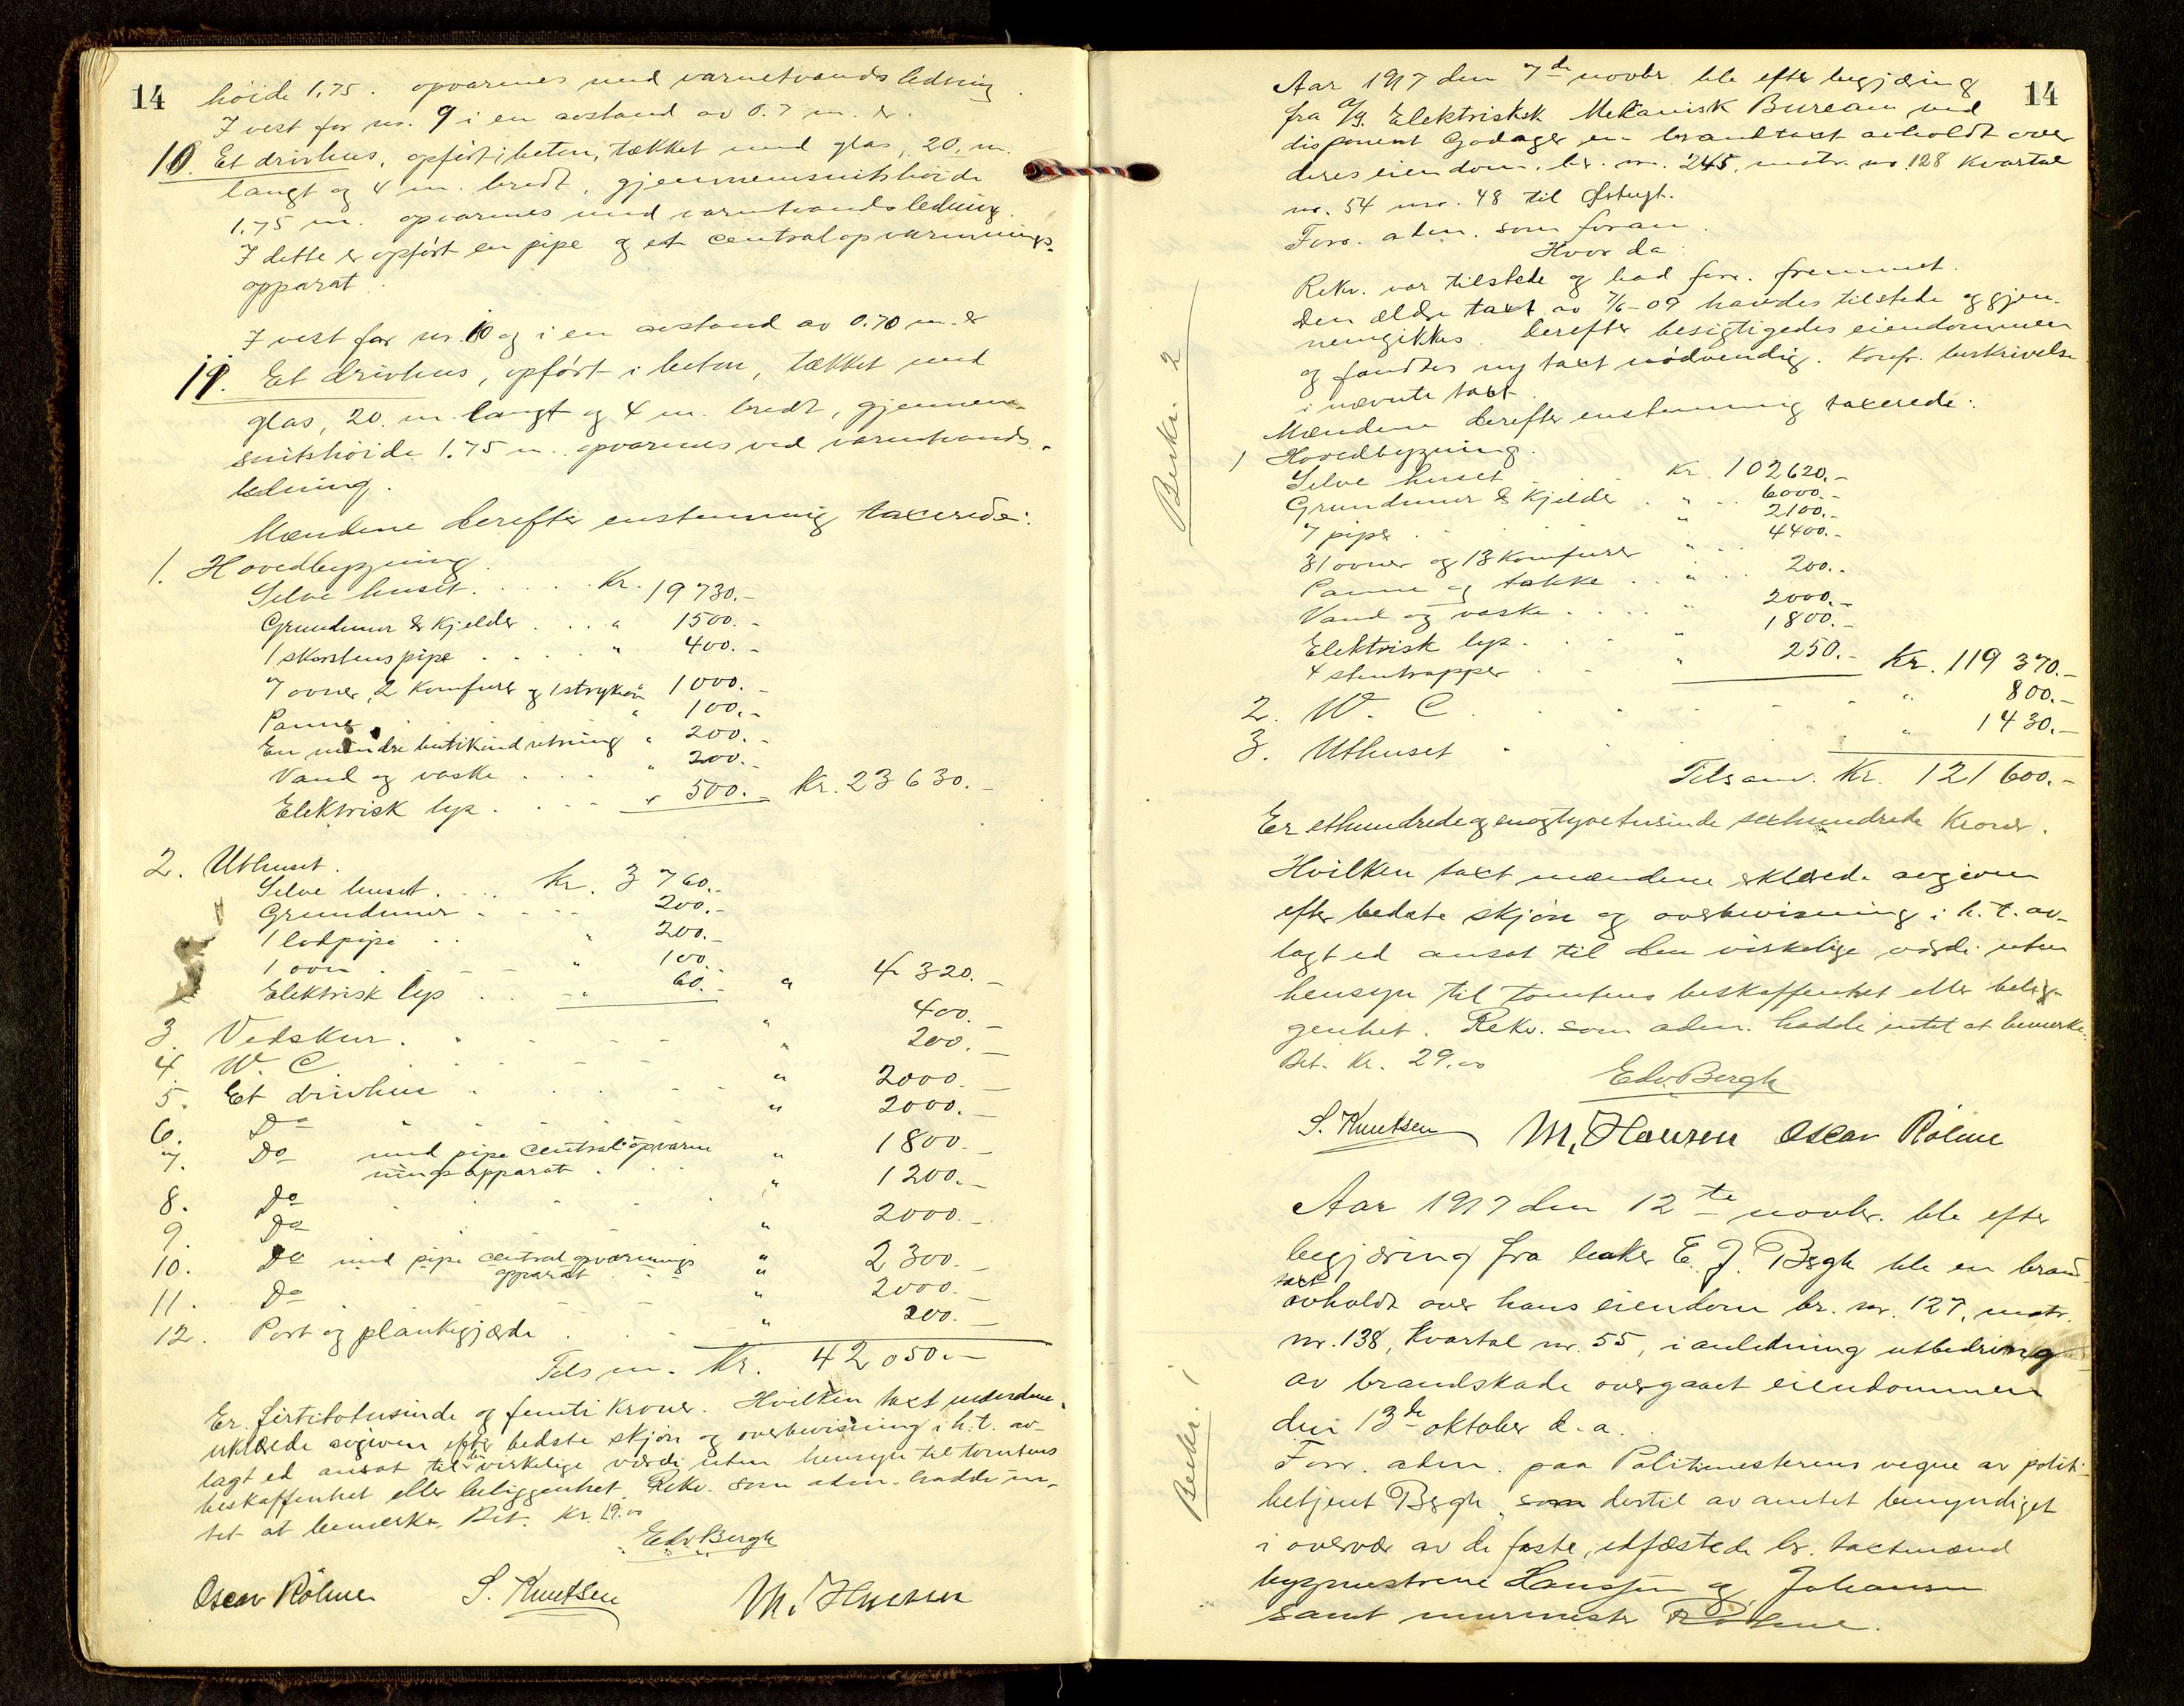 14
høide 1.75. opvarmes med varmetvandsledning.
I vest for nr. 9 i en avstand av 0.7 m. er
10. Et drivhus, opført i beton, tækket med glas, 20. m.
langt og 4 m. bredt, gjennemsnitshøide
1.75 m. opvarmes med varmtvandsledning.
I dette er opført en pipe og et centralopvarmnings-
apparat.
I vest for nr. 10 og i en avstand av 0.70 m. er
11. Et drivhus, opført i beton, tækket med
glas, 20. m. langt og 4 m. bredt, gjennem-
snitshøide 1.75 m. opvarmes ved varmtvands-
ledning.
Mændene derefter enstemmig taxerede:
1. Hovedbygning.
Selve huset. . . . Kr. 19730.-
Grundmur & kjelder . . . " 1500.-
1 skorstenspipe . . . . " 400.-
7 ovner, 2 komfurer og 1 strykeovn " 1000.-
Panne " 100.-
En mindre butikindretning " 200.-
Vand og vaske . . . " 200.-
Elektrisk lys . . . . " 500.- Kr. 23630.-
2. Uthuset.
Selve huset. . . . Kr. 3760.-
Grundmur . . . . 200.-
1 lodpipe . . " 200.-
1 ovn . - - - " 100.-
Elektrisk lys . . - " 60.- " 4320.-
3. Vedskur. " 400.-
4. W. C. " 200.-
5. Et drivhus . " 2000.-
6. Do " 2000.-
7. Do med pipe centralopvarm
ningsapparat . " 1800.-
8. Do " 1200.-
9. Do " 2000.-
10. Do med pipe centralopvarmnings
apparat " 2300.-
11. Do " 2000.-
12. Port og plankegjærde . " 200.-
Tilsm. Kr. 42050.-
Er. førtitotusinde og femti Kroner. Hvilken taxt mændene
erklærede avgiven efter bedste skjøn og overbevisning i h.t. av-
lagt ed ansat til den virkelige værdi uten hensyn til tomtens
beskaffenhet eller beliggenhet. Rekv. som adm. hadde in-
tet at bemerke. Bet. Kr. 19.00
Edv Bergh
Oscar Rölme S. Knutsen M. Hansen
14
Aar 1917 den 7de novbr. ble efter begjæring
fra A/S. Elektriskek Mekanisk Bureau ved
disponent Godager en brandtaxt avholdt over
deres eiendom, br. nr. 245, matr. no. 128 kvartal
no. 54 nro. 48 til Østregt.
Forr. adm. som foran.
Hvor da:
Rekv. var tilstede og bad forr. fremmet.
Den ældre taxt av 7/6-09 havdes tilstede og gjen-
nemgikkes. Derefter besigtigedes eiendommen
og fandtes ny taxt nødvendig. Konfr. beskrivelse
i nævnte taxt.
Mændene derefter enstemmig taxerede:
Beskr. 2
1 Hovedbygning.
Selve huset . . . Kr. 102620.-
Grundmur & kjelder . " . 6000.-
7 piper . " 2100.-
31 ovner og 13 komfurer " . 4400.-
Panne og takke . . " . . 200.-
Vand og vaske . . . . " 2000.-
Elektrisk lys . . . " 1800.-
4 stentrapper . . " 250.- Kr. 119370.-
2. W. C. . . . . . " 800.-
3. Uthuset . . . . " 1430.-
Tilsam. Kr. 121600.-
Er ethundredeogenogtyvetusinde sexhundrede Kroner.
Hvilken taxt mændene erklærede avgiven
efter bedste skjøn og overbevisning i h.t. av-
lagt ed ansat til den virkelige værdi uten
hensyn til tomtens beskaffenhet eller belig-
genhet. Rekv. som adm. hadde intet at bemerke.
Bet. Kr. 29.00
Edv. Bergh
S. Knutsen M. Hansen Oscar Rölme
Aar 1917 den 12te novbr. ble efter
begjæring fra baker E. J. Bergh ble en brand-
taxt
avholdt over hans eiendom br. nr. 127, matr.
nr. 138, kvartal nr. 55, i anledning utbedring
av brandskade overgaaet eiendommen
den 13de oktober d.a.
Beskr. 1
Forr. adm. paa Politimesterens vegne av politi-
betjent Bergh, som dertil av amtet bemyndiget
i overvær av de faste, edfæstede br. taxtmænd
bygmestrene Hanssen og Johansen
samt murmester Rölme.